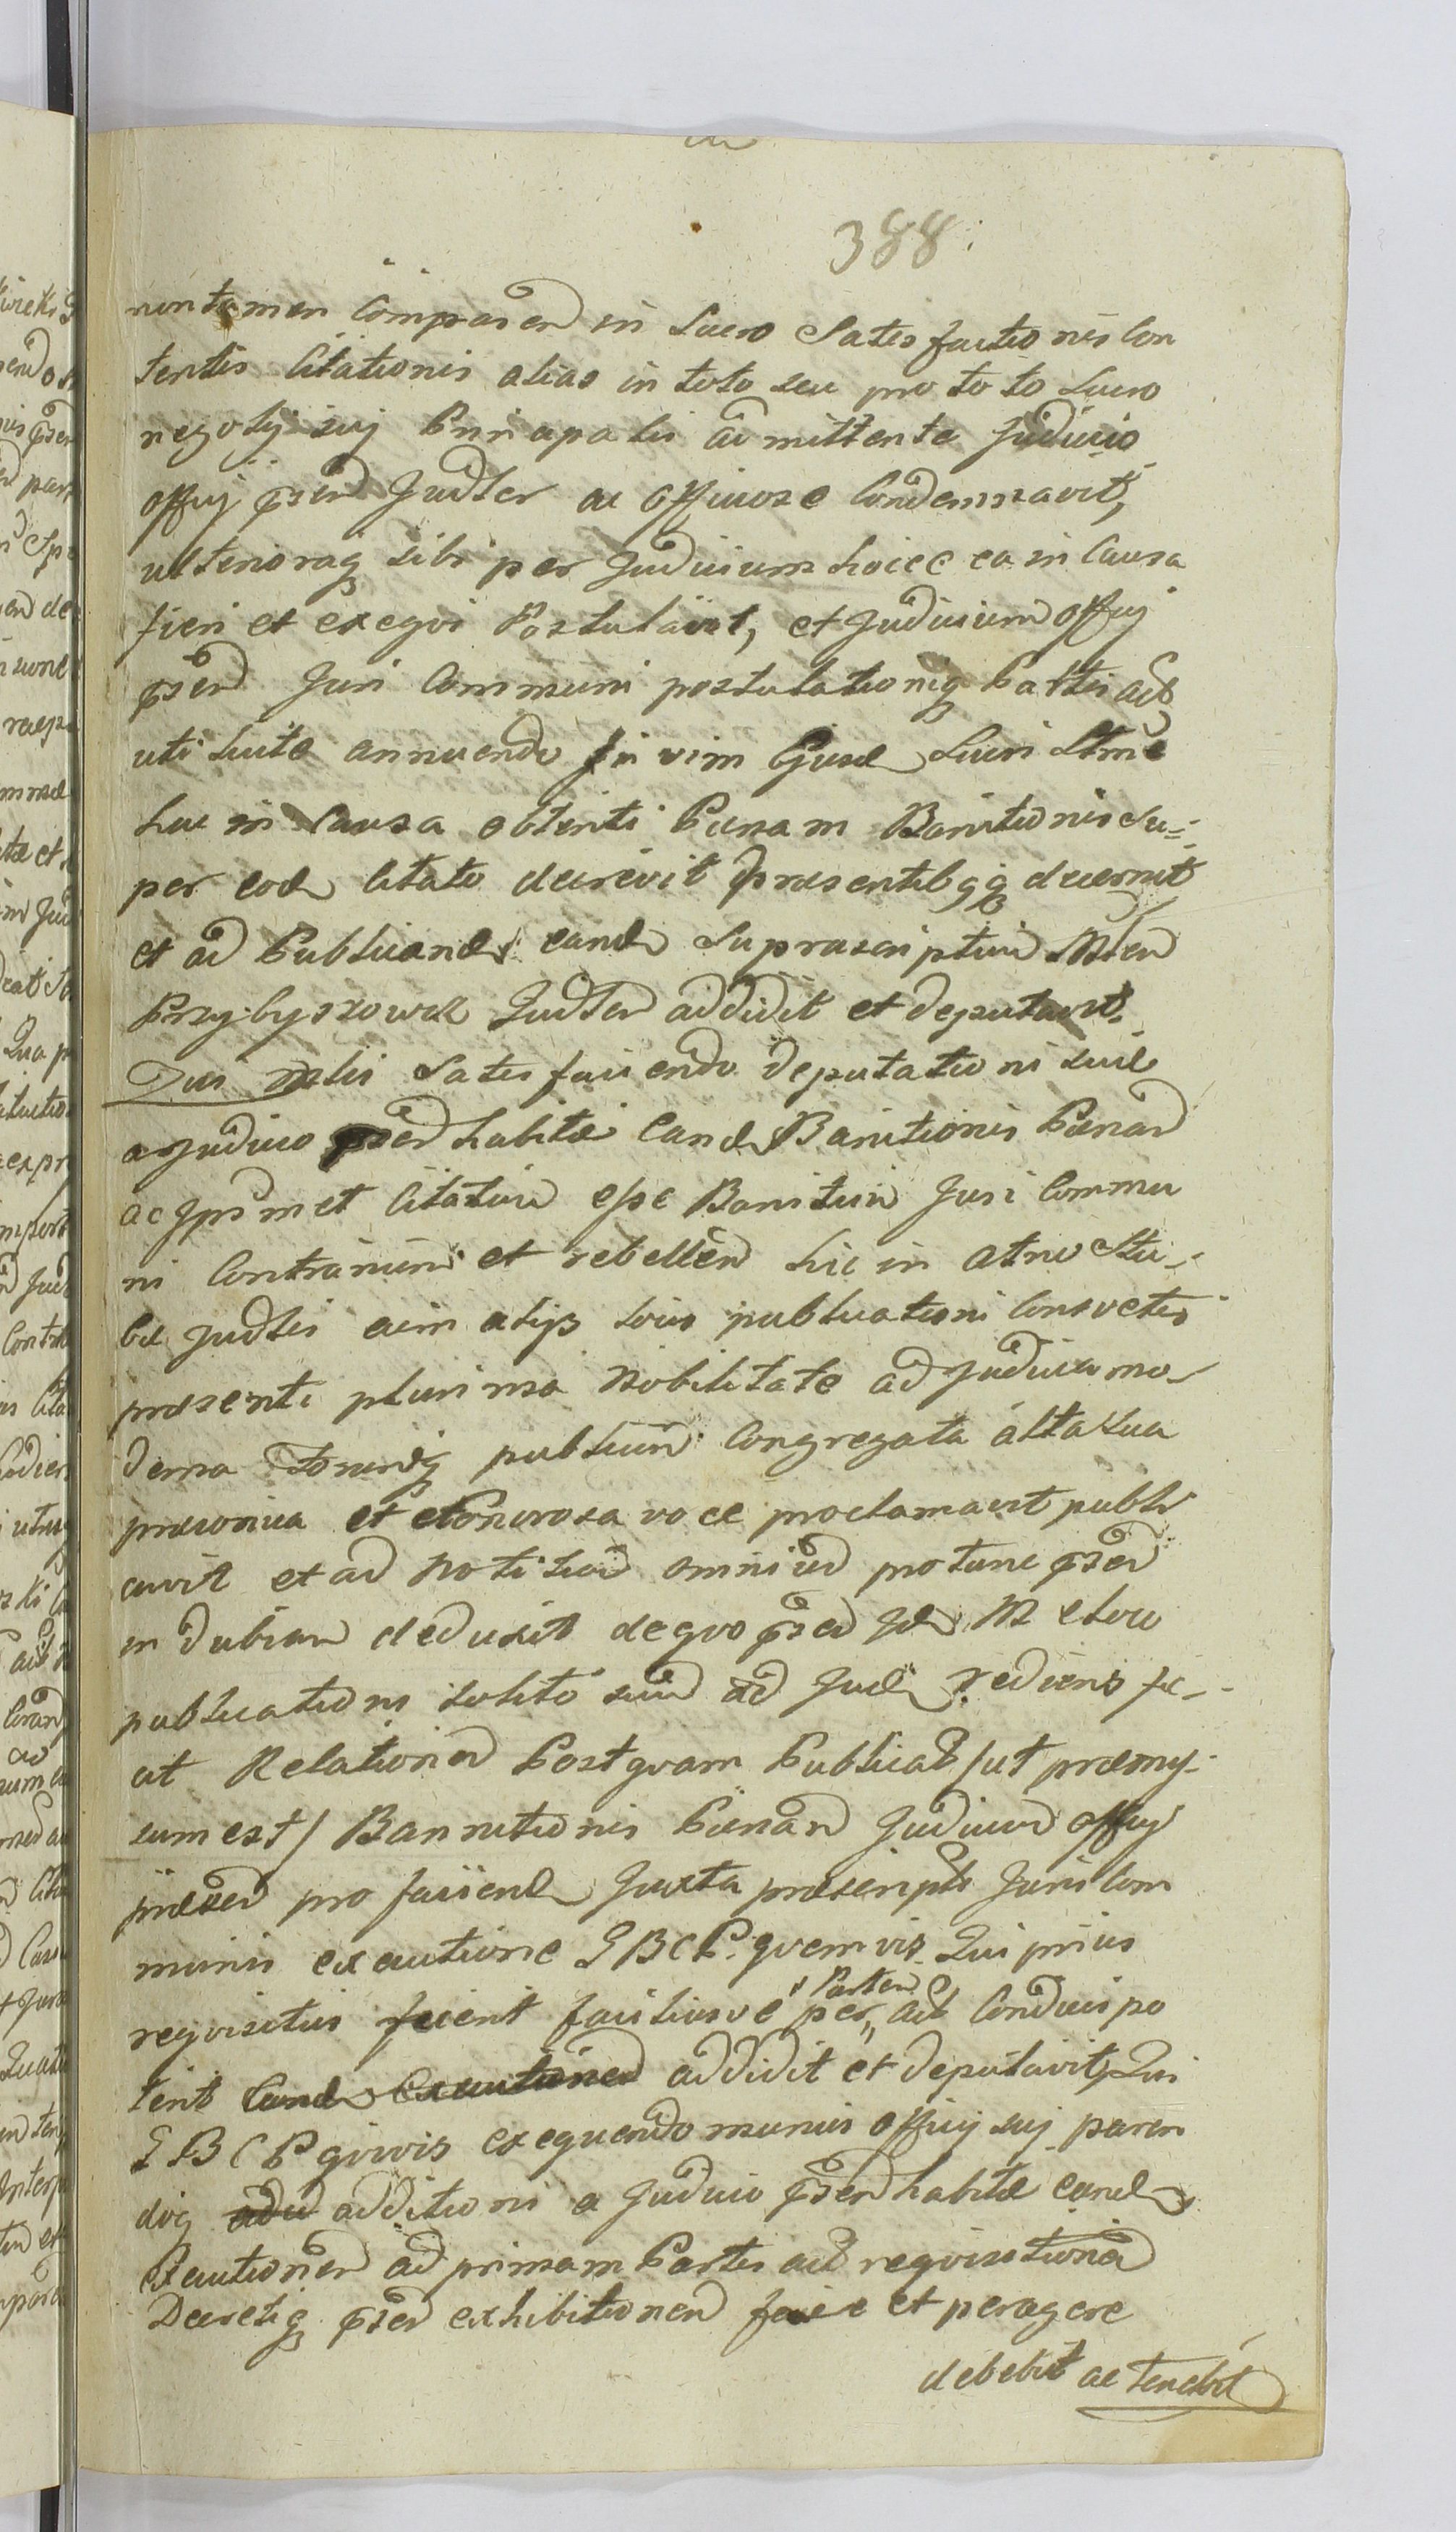 388
non tamen Comparen in Lucro Satisfactionis Con
tentis Citationis alias in toto seu pro toto Lucro
negotij suj Principalis admittente Judicio
offij psen Judlter ac officiose Condemnavit,
ulterioraq sibi per Judicium hocce ea in Causa
fieri et exeqvi Postulavit, et Judicium offij
psen Juri Communi postulationiq Partis act
uti juste annuendo In vim hujusd Lucri Ltme
hac in Causa obtenti Pænam Banitionis Su=
per eod Citato decrevit præsentibqq decernit
et ad Publicand eand Suprascriptum Mlem
Przybyszowsk Judlter addidit et deputavit.
Qui Mlis Satisfaciendo deputationi suæ
a Judicio psen habitæ eand Banitionis Pænam
ac Ipsmet Citatum esse Banitum Juri Commu
ni Contrarium et rebellem hic in atrio Stu-
bæ Judlis acim alijs locis publicationi Consvetis
præsenti plurima Nobilitate ad Judicia mo-
derna Forumq publicum Congregata alta sua
præconica et Sonorosa voce proclamavit publi
cavit et ad Notitiam omnium protunc psen
in dubiam deduxit deqvo psen Id M e loco
publicationi solito suum ad Jud rediens fe-
cit Relationem Postqvam Publicat /ut præmys-
sum est/ Bannitionis Pænam Judicium offij
præsen pro faciend Juxta præscript Juris Com
munis executione G B C P. qvemvis Qui prius
reqvisitus fuerit faciliusve per Partem act Conduci po
terit eand Executionem addidit et deputavit, Qui
G B C P qvivis exequendo munus offij suj paren
doq adu additioni a Judicio psen habitæ eand
Executionem ad primam Partis act reqvisitionem
Decretiq psen exhibitionem facere et peragere
debebit ac tenebit